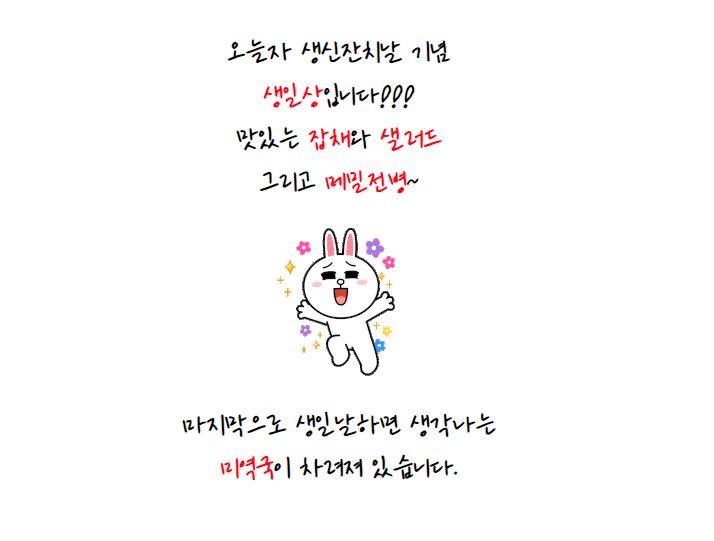 오늘자 생신잔치날 기념
생일상입니다!!!
맛있는 잡채와 샐러드
그리고 메밀전병~
마지막으로 생일날하면 생각나는
미역국이 차려져 있습니다.